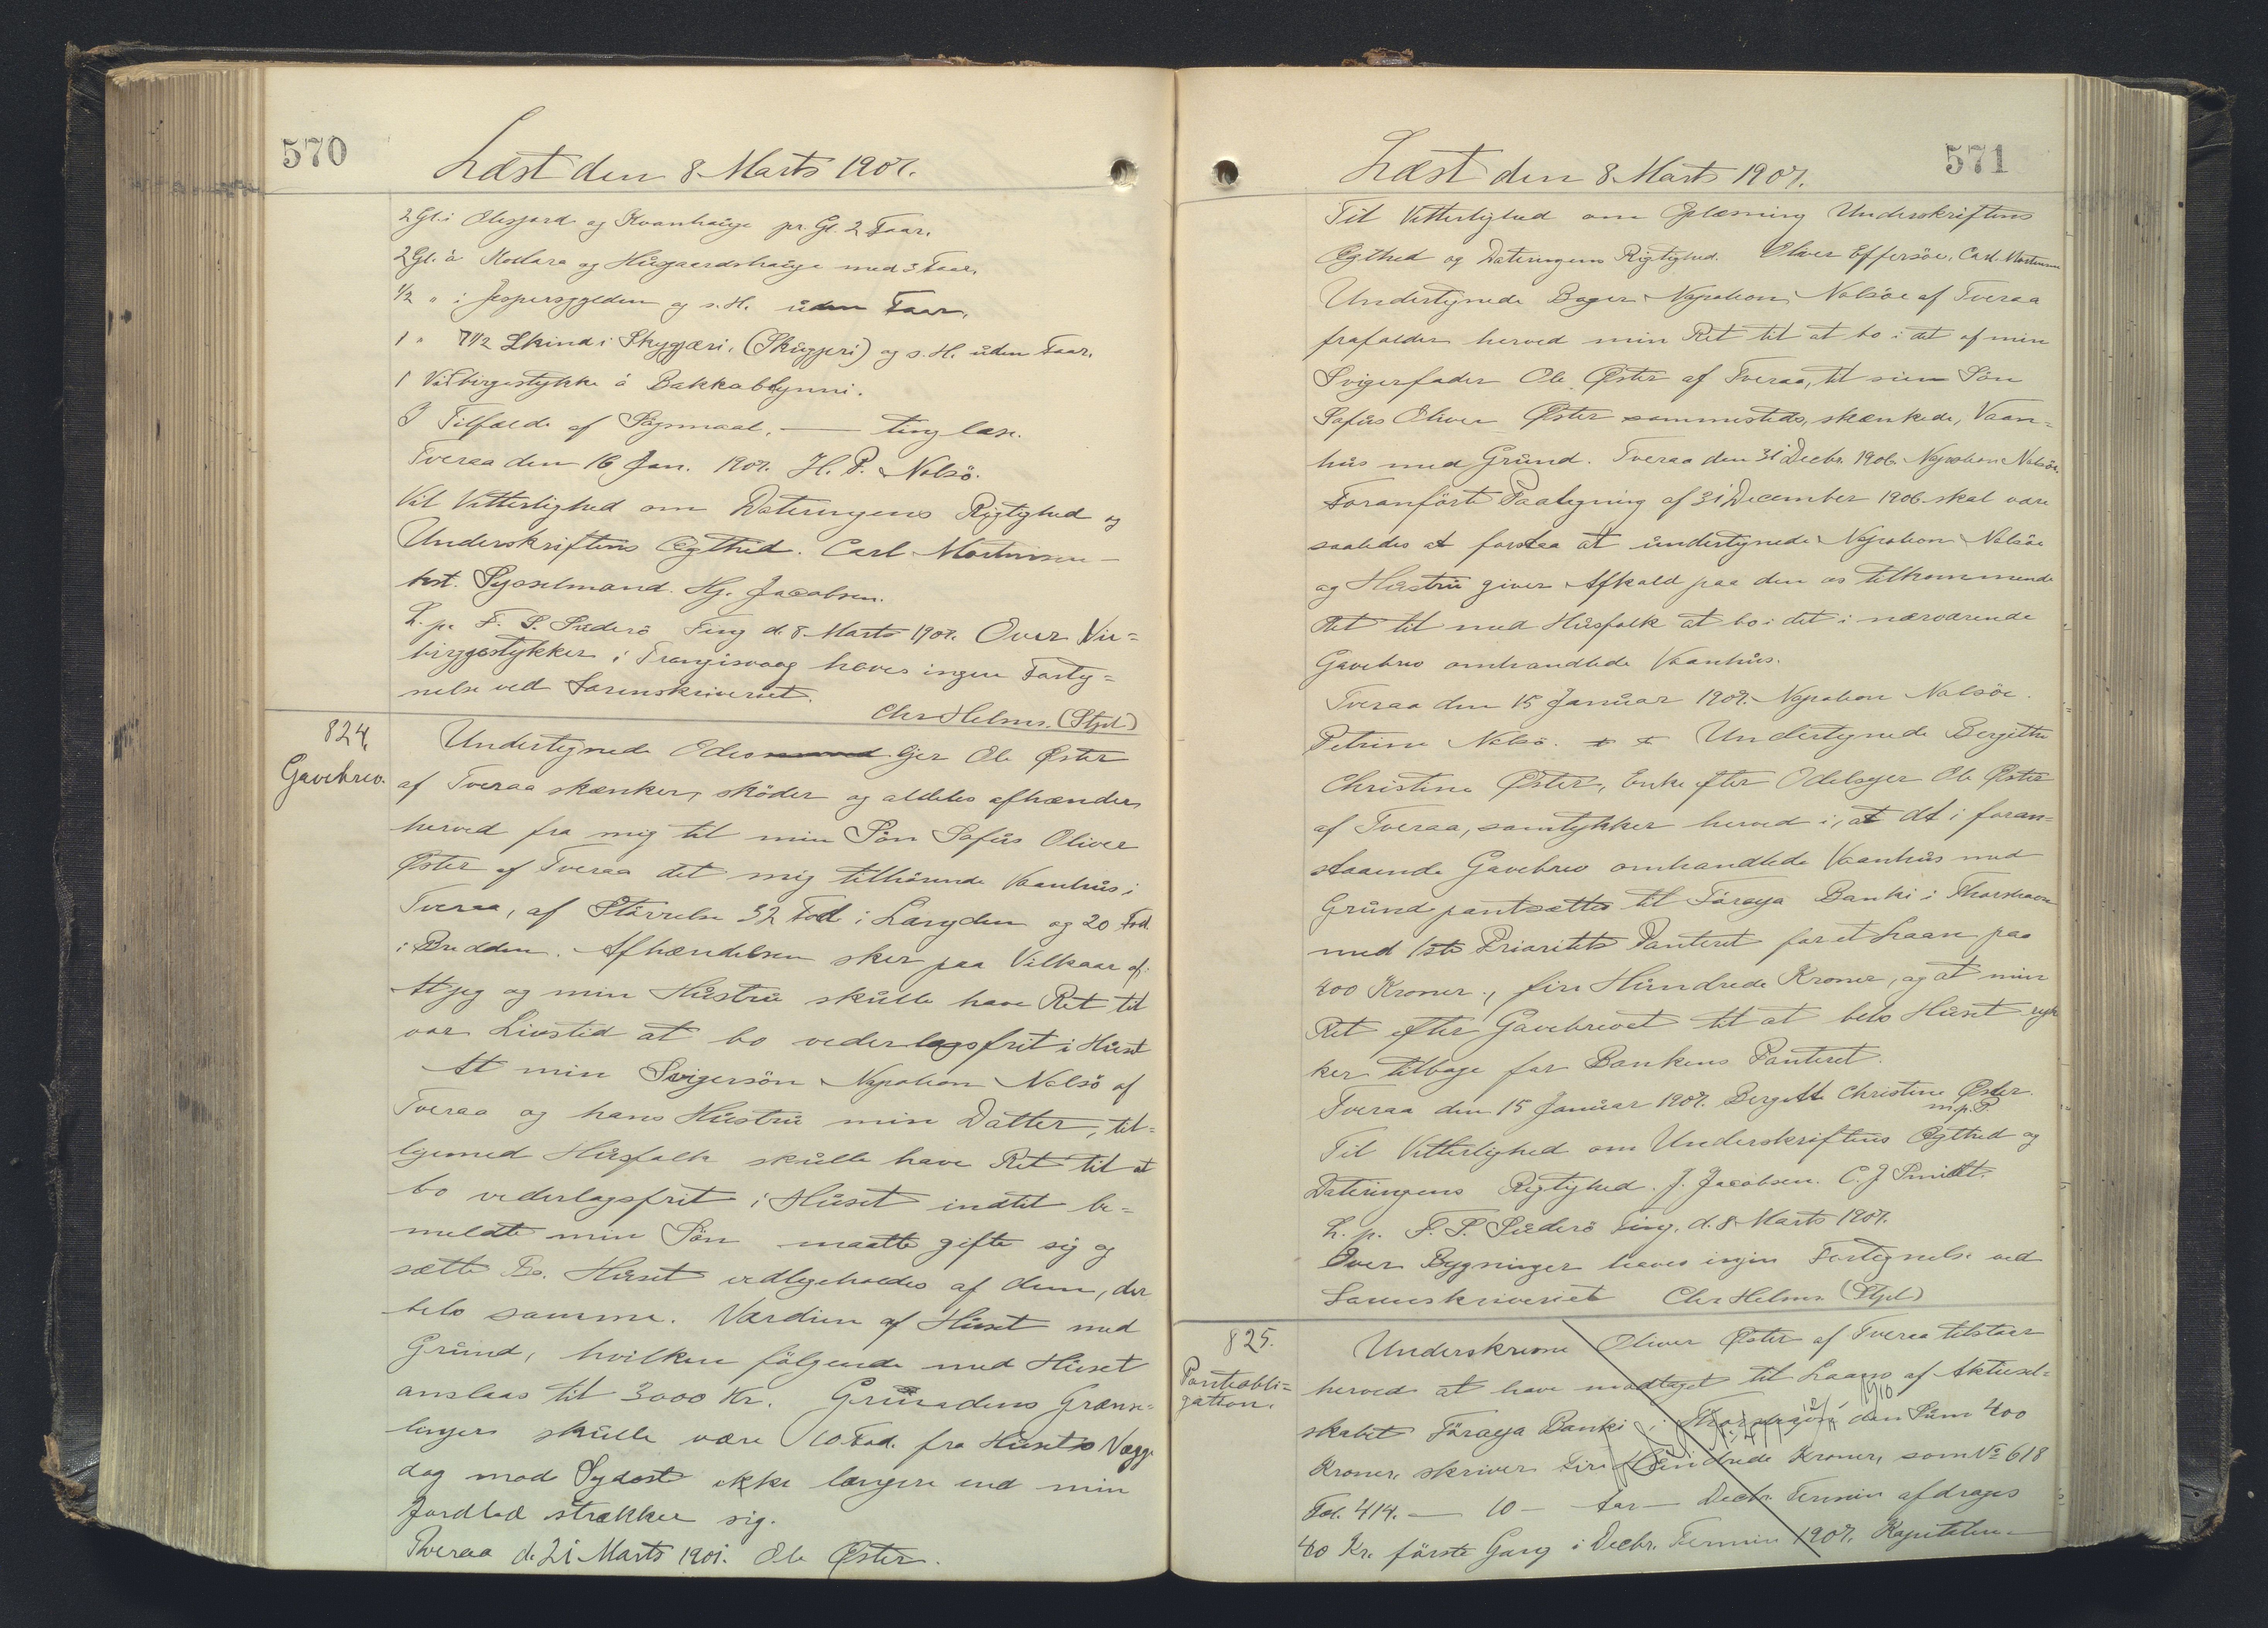 570
Læst den 8 Marts 1907.
2 Gl. i Olesjord og Kvanhauge pr. Gl. 2 Faar.
2 Gl. á Kodlara og Húsgaardshauge med 3 Faar.
1/2 " i Jespersgylden og s. H. uden Faar.
1 " 7 1/2 Skind i Skyggæri, (Skuggjeri) og s. H. uden Faar.
1 Virbirgestykke á Bakkablynni.
I Tilfælde af Søgsmaal, — ting læse.
Tveraa den 16 Jan. 1907. H. P. Nolsö.
Til Vitterlighed om Dateringens Rigtighed og
Underskriftens Ægthed. Carl Mortensen
kst. Sysselmand. Hj. Jacobsen.
L. p. F. S. Suderö Ting d. 8 Marts 1907. Over Vir=
birggestykker i Trangisvaag haves ingen Forteg=
nelse ved Sorenskriveriet.
Chr Helms. (Stpl)
824.
Gavebrev.
Undertegnede Odels ejer Ole Øster
af Tveraa skænker, sköder og aldeles afhænder
herved fra mig til min Sön Sofus Oliver
Øster af Tveraa det mig tilhörende Vaanhus i
Tveraa, af Störrelse 32 Fod i Længden og 20 Fod
i Bredden. Afhændelsen sker paa Vilkaar af:
At jeg og min Hustru skulle have Ret til
vor Livstid at bo vederlagsfrit i Huset
At min Svigersön Napoleon Nolsö af
Tveraa og hans Hustru min Datter, til=
ligemed Husfolk skulle have Ret til at
bo vederlagsfrit i Huset indtil be=
meldte min Sön maatte gifte sig og
sætte Bo. Huset vedligeholdes af dem, der
bebo samme. Værdien af Huset med
Grund, hvilken fölgende med Huset
anslaas til 3000 Kr. Grundens Grænse=
linjer skulle være 10 Fod. fra Husets Vægge
dog mod Sydost ikke længere end min
Jordlod strækker sig.
Tveraa d. 21 Marts 1901. Ole Øster.
571
Læst den 8 Marts 1907.
Til Vitterlighed om Oplæsning Underskriftens
Ægthed og Dateringens Rigtighed. Oliver Effersöe, Carl Mortensen
Undertegnede Bager Napoleon Nolsöe af Tveraa
frafalder herved min Ret til at bo i det af min
Svigerfader Ole Øster af Tveraa, til sin Sön
Sofus Oliver Øster sammesteds, skænkede, Vaan=
hus med Grund. Tveraa den 31 Decbr. 1906. Napoleon Nolsöe.
Foranförte Paategning af 31 December 1906 skal være
saaledes at forstaa at undertegnede Napoleon Nolsöe
og Hustru giver Afkald paa den os tilkommende
Ret til med Husfolk at bo i det i nærværende
Gavebrev omhandlede Vaanhus.
Tveraa den 15 Januar 1907. Napoleon Nolsöe.
Petrine Nolsö. Undertegnede Bergitte
Christine Øster, Enke efter Odelsejer Ole Øster
af Tveraa, samtykker herved i, at det i foran=
staaende Gavebrev omhandlede Vaanhus med
Grund pantsættes til Föroya Banki i Thorshavn
med 1ste Prioritets Panteret for et Laan paa
400 Kroner, fire Hundrede Kroner, og at min
Ret efter Gavebrevet til at bebo Huset ryk
ker tilbage for Bankens Panteret.
Tveraa den 15 Januar 1907. Bergitte Christine Øster
m. p. P.
Til Vitterlighed om Underskriftens Ægthed og
Dateringens Rigtighed. J. Jacobsen. C. J. Smidt.
L. p. F. S. Suderö Ting. d. 8 Marts 1907.
Over Bygninger haves ingen Fortegnelse ved
Sorenskriveriet Chr Helms (Stpl)
825.
Panteobli=
gation.
Underskrevne Oliver Øster af Tveraa tilstaar
herved at have modtaget til Laans af Aktiesel=
skabet Föroya Banki i Thorshavn den Sum 400
Kroner, skriver fire Hundrede Kroner, som No 618
Fol. 414. — 10 — for — Decbr. Termin afdrages
40 Kr. förste Gang i Decbr. Termin 1907. Kapitalen —